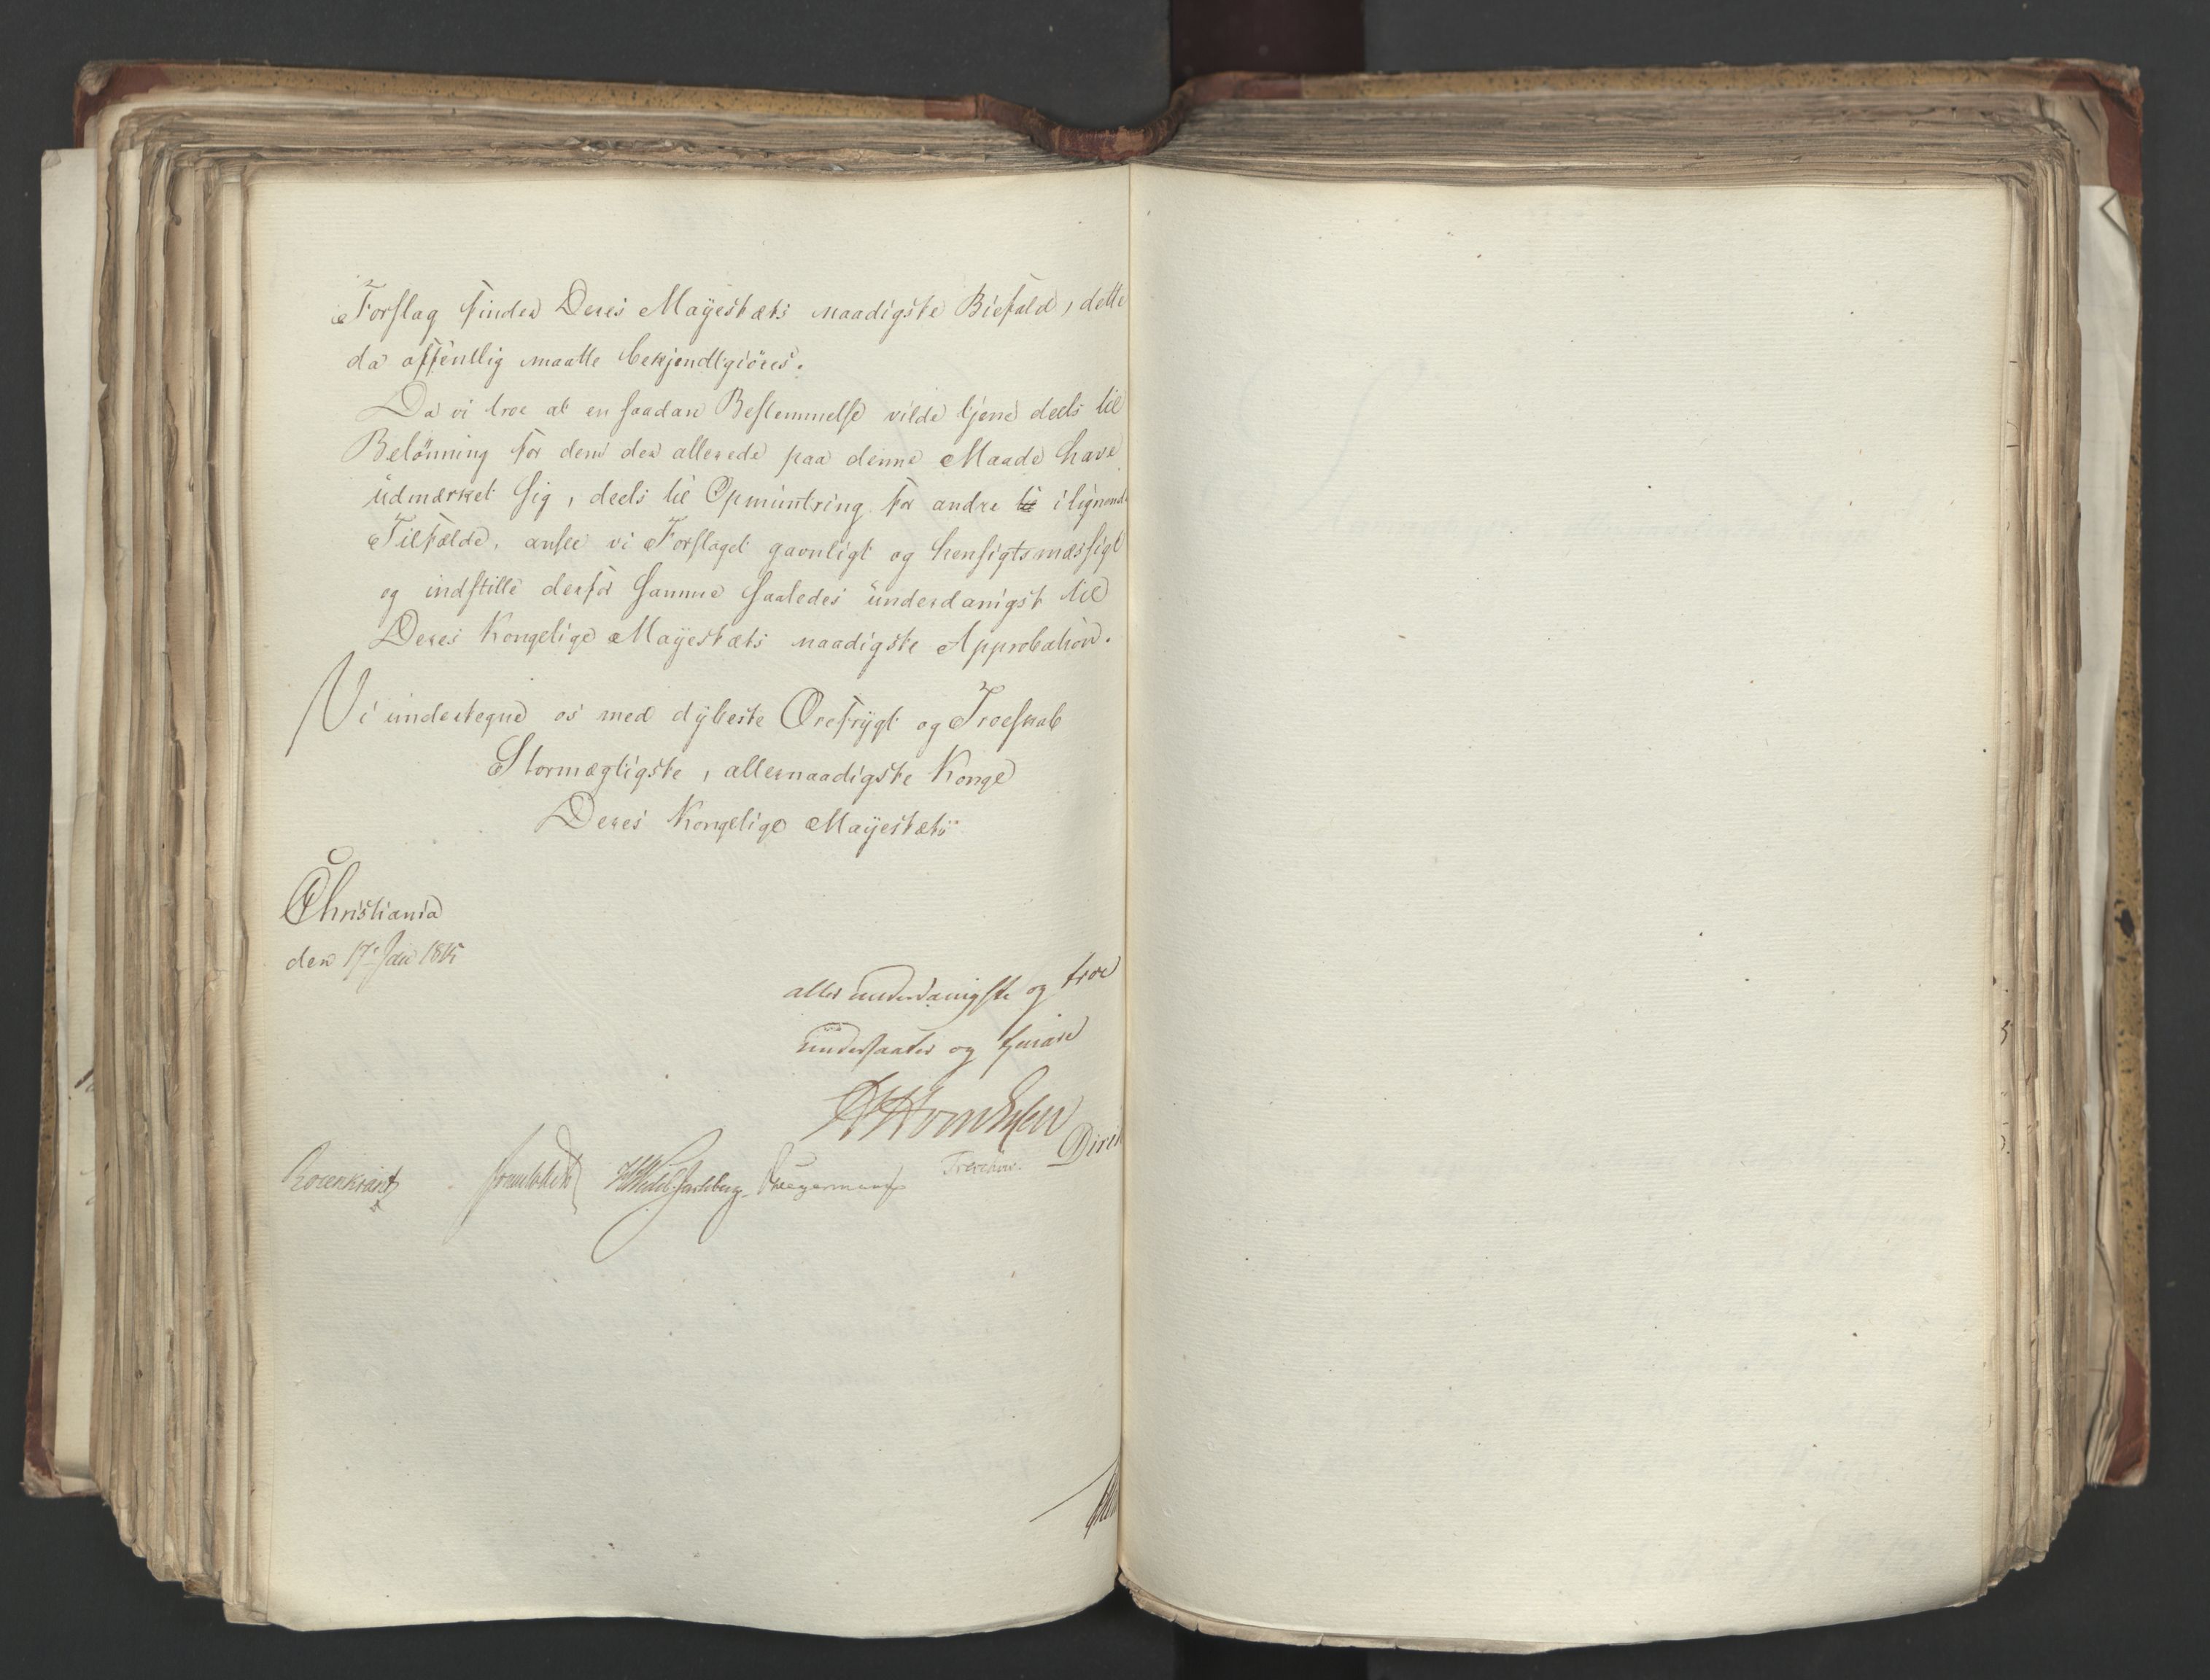 Forslag finder Deres Mayestæts naadigste Biefald, dette
da offentlig maatte bekjendtgiöres.
Da vi troe at en saadan Bestemmelse vilde tjene deels til
Belönning for dem der allerede paa denne Maade have
udmærket sig, deels til Opmuntring for andre i lignende
Tilfælde, ansee vi Forslaget gavnligt og hensigtsmæssigt
og indstille derfor samme saaledes underdanigst til
Deres Kongelige Mayestæts naadigste Approbation.
Vi undertegne os med dybeste Ærefrygt og Troeskab
Stormægtigste, allernaadigste Konge
Deres Kongelige Mayestæts
Christiania
den 17 1815
aller underdanigste og troe
undersaatter og tjenere
Rosenkrantz Sommerhielm HWedel-Jarlsberg. Krieger
Treschow.